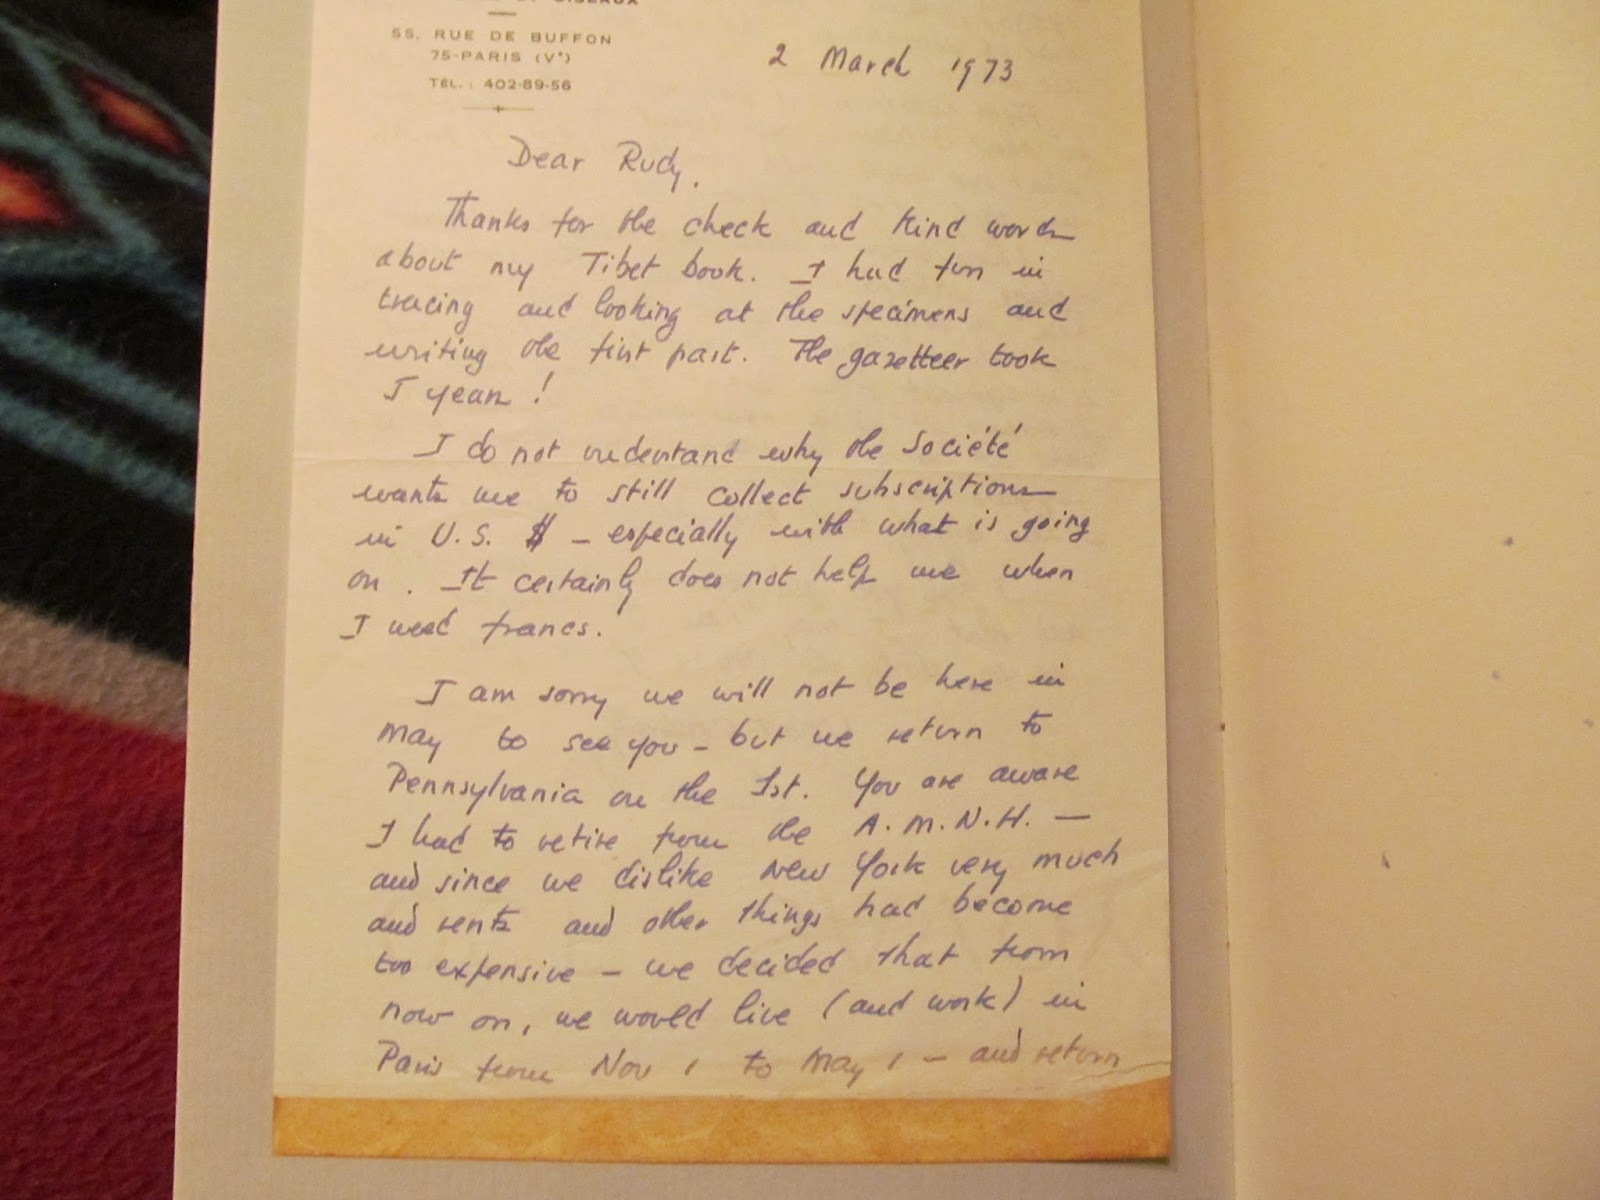 OISEAUX
55, RUE DE BUFFON
75-PARIS (Vᵉ)
TÉL. : 402-89-56
2 March 1973
Dear Rudy,
Thanks for the check and kind words
about my Tibet book. I had fun in
tracing and looking at the specimens and
writing the first part. The gazetteer took
years !
I do not understand why the Société
wants me to still collect subscriptions
in U.S. $ – especially with what is going
on . It certainly does not help me when
I need francs.
I am sorry we will not be here in
May to see you – but we return to
Pennsylvania on the 1st. You are aware
I had to retire from the A.M.N.H. –
and since we dislike New York very much
and rents and other things had become
too expensive – we decided that from
now on, we would live (and work) in
Paris from Nov 1 to May 1 – and return